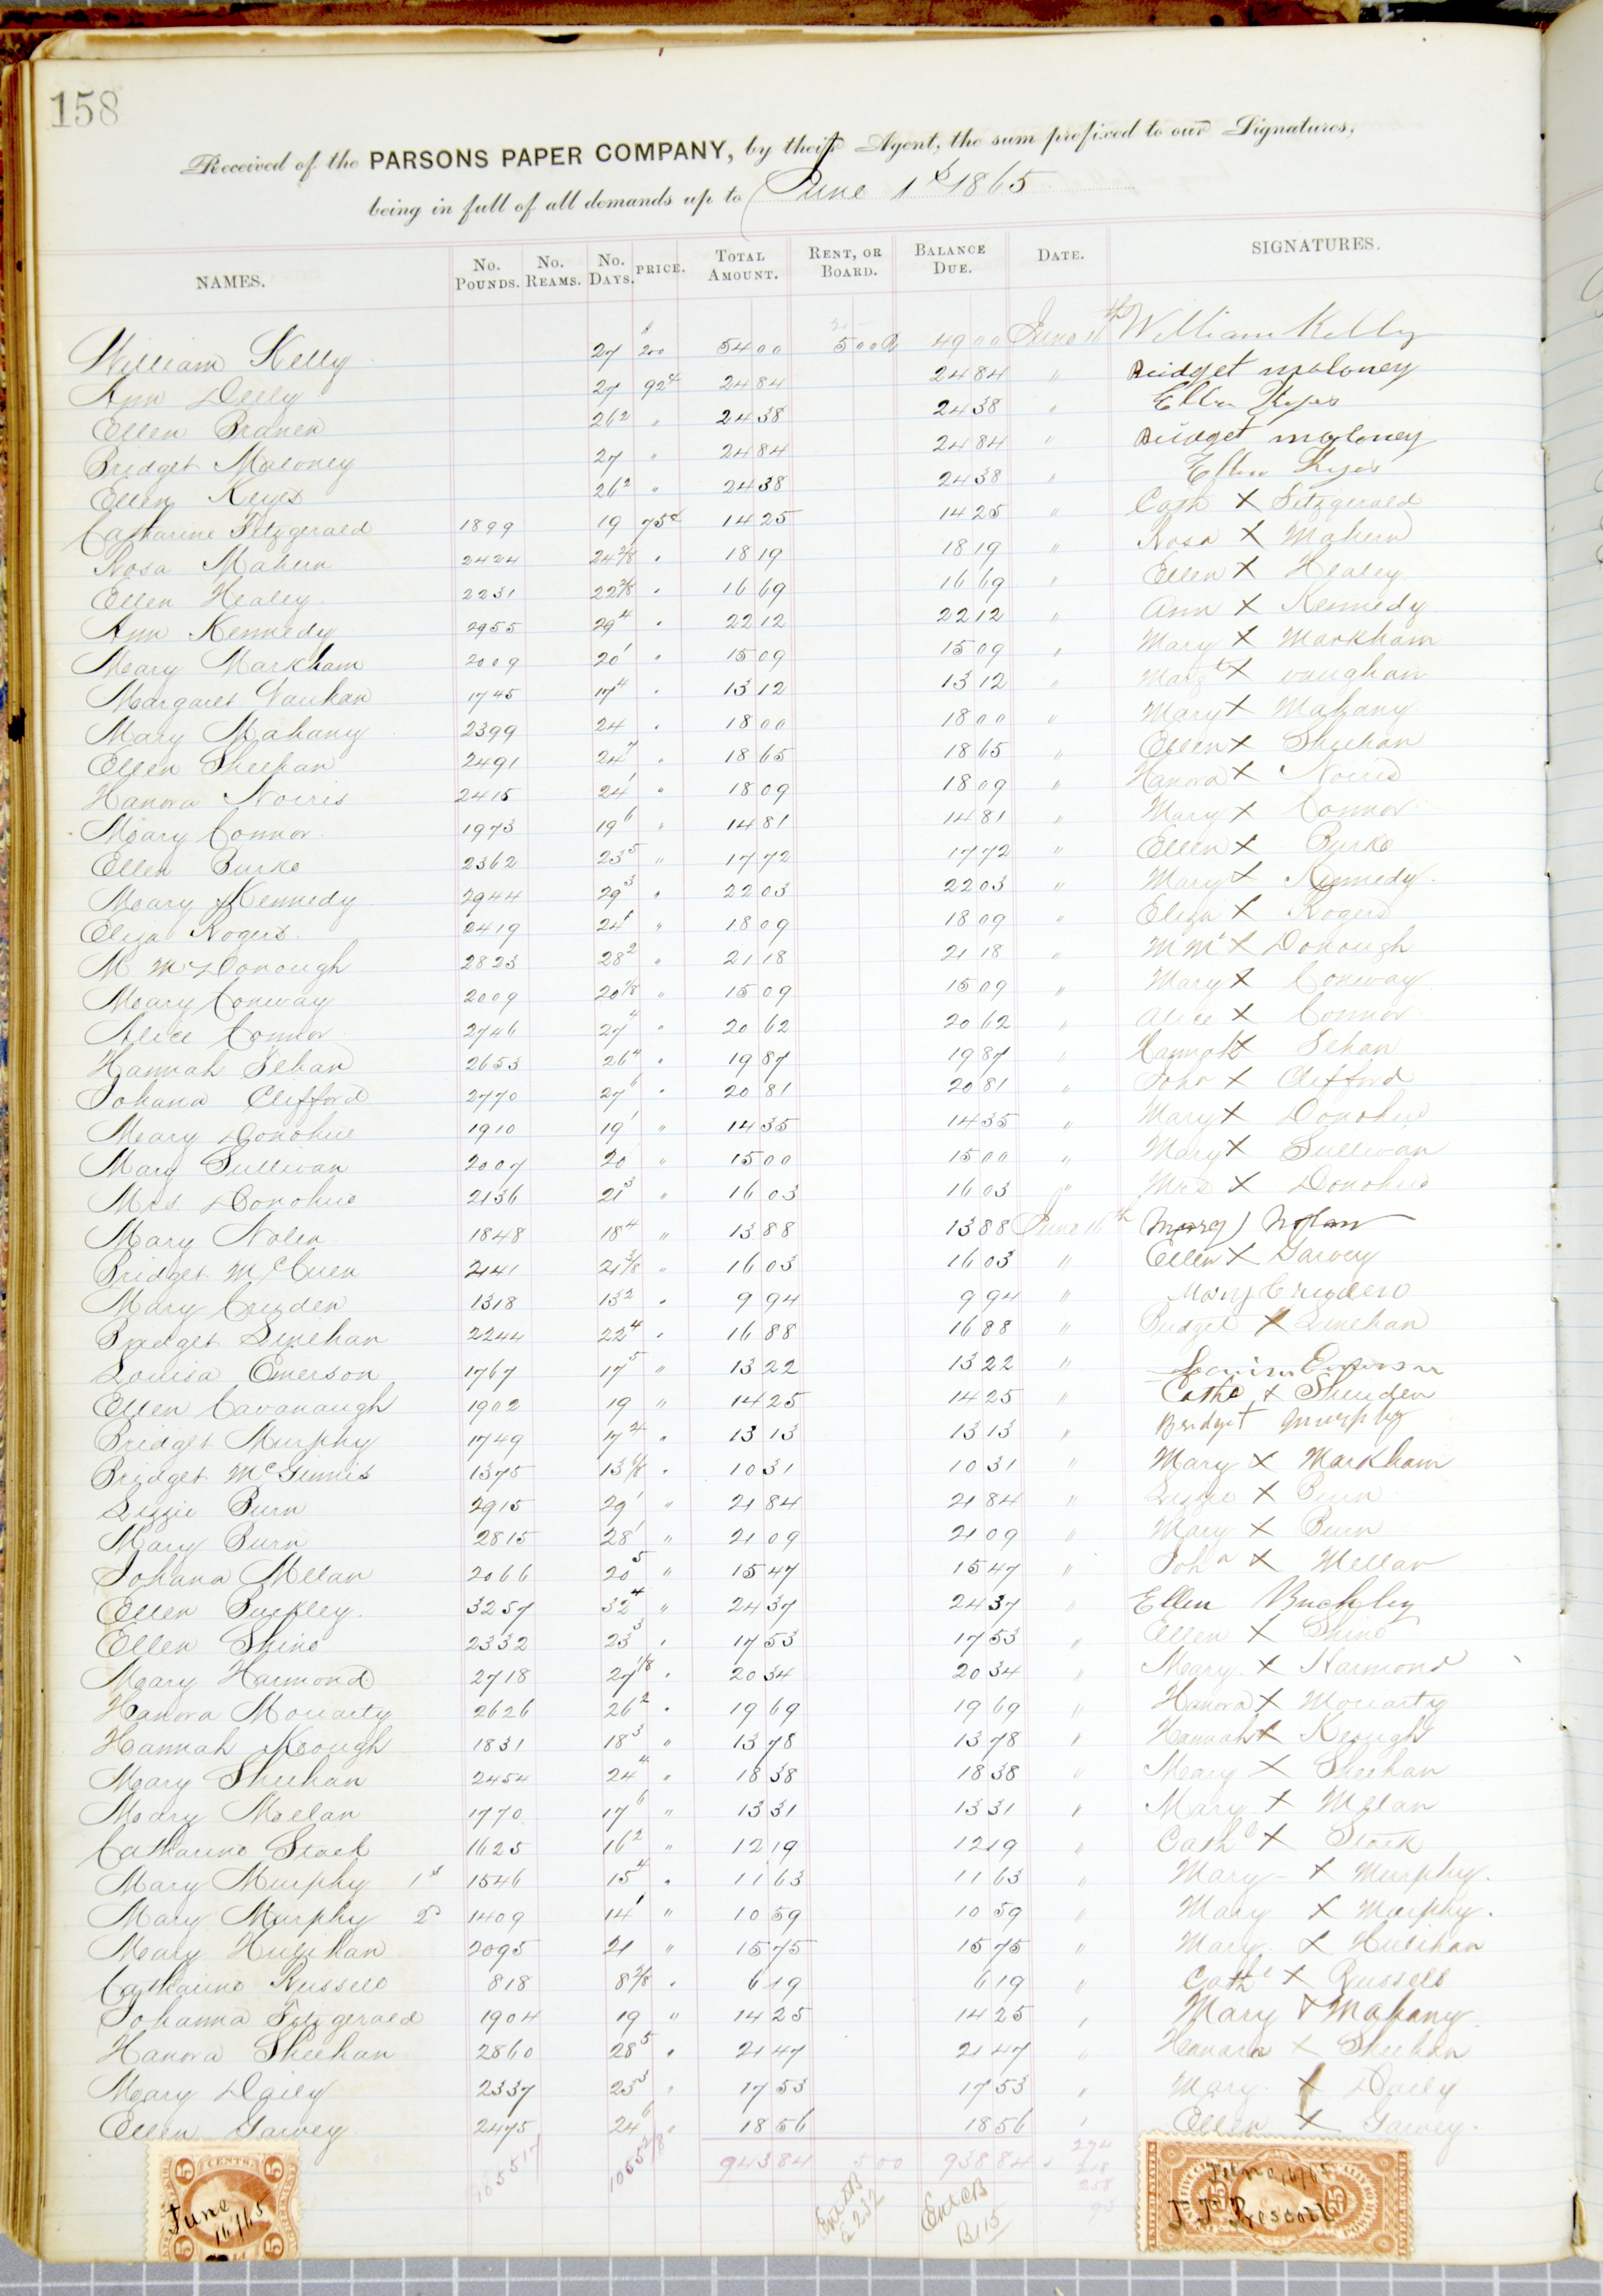 158
Received of the PARSONS PAPER COMPANY, by their Agent, the sum prefixed to our Signatures,
being in full of all demands up to June 1st 1865
NAMES. No. Pounds. No. Reams. No. Days. PRICE. Total Amount. Rent, or Board. Balance Due. Date. SIGNATURES.
William Kelly 27 200 54 00 5 00 49 00 June 16th William Kelly
Ann Delly 27 92 4 24 84 24 84 " Bridget moloney
Ellen Branen 26 2 " 24 38 24 38 " Ellen Keyes
Bridget Maloney 27 " 24 84 24 84 " Bridget moloney
Ellen Keyes 26 2 " 24 38 24 38 " Ellen Keyes
Catharine Fitzgerald 1899 19 75c 14 25 14 25 " Cath X Fitzgerald
Rosa Mahern 2424 24 2/8 " 18 19 18 19 " Rosa X Mahern
Ellen Healey 2231 22 2/8 " 16 69 16 69 " Ellen X Healey
Ann Kennedy 2955 29 4 " 22 12 22 12 " Ann X Kennedy
Mary Markham 2009 20 1 " 15 09 15 09 " Mary X Markham
Margaret Vauhan 1745 17 4 " 13 12 13 12 " Margt X vaughan
Mary Mahany 2399 24 " 18 00 18 00 " Mary X Mahany
Ellen Sheehan 2491 24 7 " 18 65 18 65 " Ellen X Sheehan
Hanora Norris 2415 24 1 " 18 09 18 09 " Hanora X Norris
Mary Connor 1973 19 6 " 14 81 14 81 " Mary X Connor
Ellen Burke 2362 23 5 " 17 72 17 72 " Ellen X Burke
Mary Kennedy 2944 29 3 " 22 03 22 03 " Mary X Kennedy
Eliza Rogers 2419 24 1 " 18 09 18 09 " Eliza X Rogers
M McDonough 2823 28 2 " 21 18 21 18 " M Mc X Donough
Mary Conway 2009 20 1/8 " 15 09 15 09 " Mary X Conway
Alice Connor 2746 27 4 " 20 62 20 62 " Alice X Connor
Hannah Sehan 2653 26 4 " 19 87 19 87 " Hannah X Sehan
Johana Clifford 2770 27 6 " 20 81 20 81 " Joha X Clifford
Mary Donohue 1910 19 1 " 14 35 14 35 " Mary X Donohue
Mary Sullivan 2007 20 " 15 00 15 00 " Mary X Sullivan
Mrs. Donohue 2136 21 3 " 16 03 16 03 " Mrs X Donohue
Mary Nolen 1848 18 4 " 13 88 13 88 June 16th Mary Nolan
Bridget McCuen 2141 21 3/8 " 16 03 16 03 " Ellen X Garvey
Mary Crigden 1318 13 2 " 9 94 9 94 " Mary Crigden
Bridget Linehan 2244 22 4 " 16 88 16 88 " Bridget X Linehan
Louisa Emerson 1767 17 5 " 13 22 13 22 " Louisa Emerson
Ellen Cavanaugh 1902 19 " 14 25 14 25 " Cathe X
Bridget Murphy 1749 17 4 " 13 13 13 13 " Bridget murphy
Bridget McGinnis 1375 13 6/8 " 10 31 10 31 " Mary X Markham
Lizzie Burn 2915 29 1 " 21 84 21 84 " Lizzie X Burn
Mary Burn 2815 28 1 " 21 09 21 09 " Mary X Burn
Johana Mellan 2066 20 5 " 15 47 15 47 " Joha X Mellan
Ellen Buckley 3257 32 4 " 24 37 24 37 " Ellen Buckley
Ellen Shine 2332 23 3 " 17 53 17 53 " Ellen X Shine
Mary Harmond 2718 27 1/8 " 20 34 20 34 " Mary X Harmond
Hanora Moriarty 2626 26 2 " 19 69 19 69 " Hanora X Moriarty
Hannah Keough 1831 18 3 " 13 78 13 78 " Hannah X Keough
Mary Sheehan 2454 24 4 " 18 38 18 38 " Mary X Sheehan
Mary Mellan 1770 17 6 " 13 31 13 31 " Mary X Mellan
Catharine Stack 1625 16 2 " 12 19 12 19 " Cathe X Stack
Mary Murphy 1st 1546 15 4 " 11 63 11 63 " Mary X Murphy.
Mary Murphy 2d 1409 14 1 " 10 59 10 59 " Mary X Murphy.
Mary Hulihan 2095 21 " 15 75 15 75 " Mary X Hulihan
Catharine Russell 818 8 2/8 " 6 19 6 19 " Cathe X Russell
Johanna Fitzgerald 1904 19 " 14 25 14 25 " Mary X Mahany
Hanora Sheehan 2860 28 5 " 21 47 21 47 " Hanora X Sheehan
Mary Daily 2337 23 3 " 17 53 17 53 " Mary X Daily
Ellen Garvey 2475 24 6 " 18 56 18 56 " Ellen X Garvey.
105517 1055 2/8 943 84 5 00 938 84
5 CENTS. 5
June 16/65
Ent CB
June 16/65
J. T. Prescott
25 25